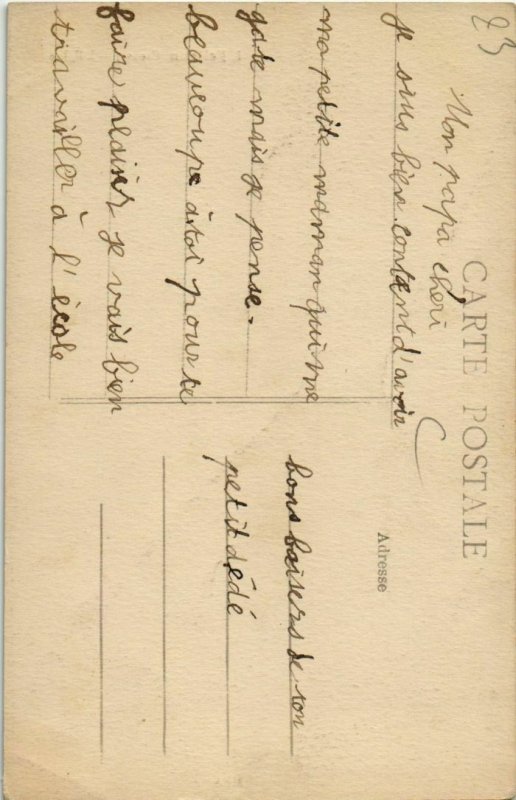 83
CARTE POSTALE
Mon papa chéri
je suis bien content d'avoir
ma petite maman qui me
gate mais je pense.
beaucoup à toi pour te
faire plaisir je vais bien
travailler à l'école
Adresse
bons baisers de ton
petit dédé